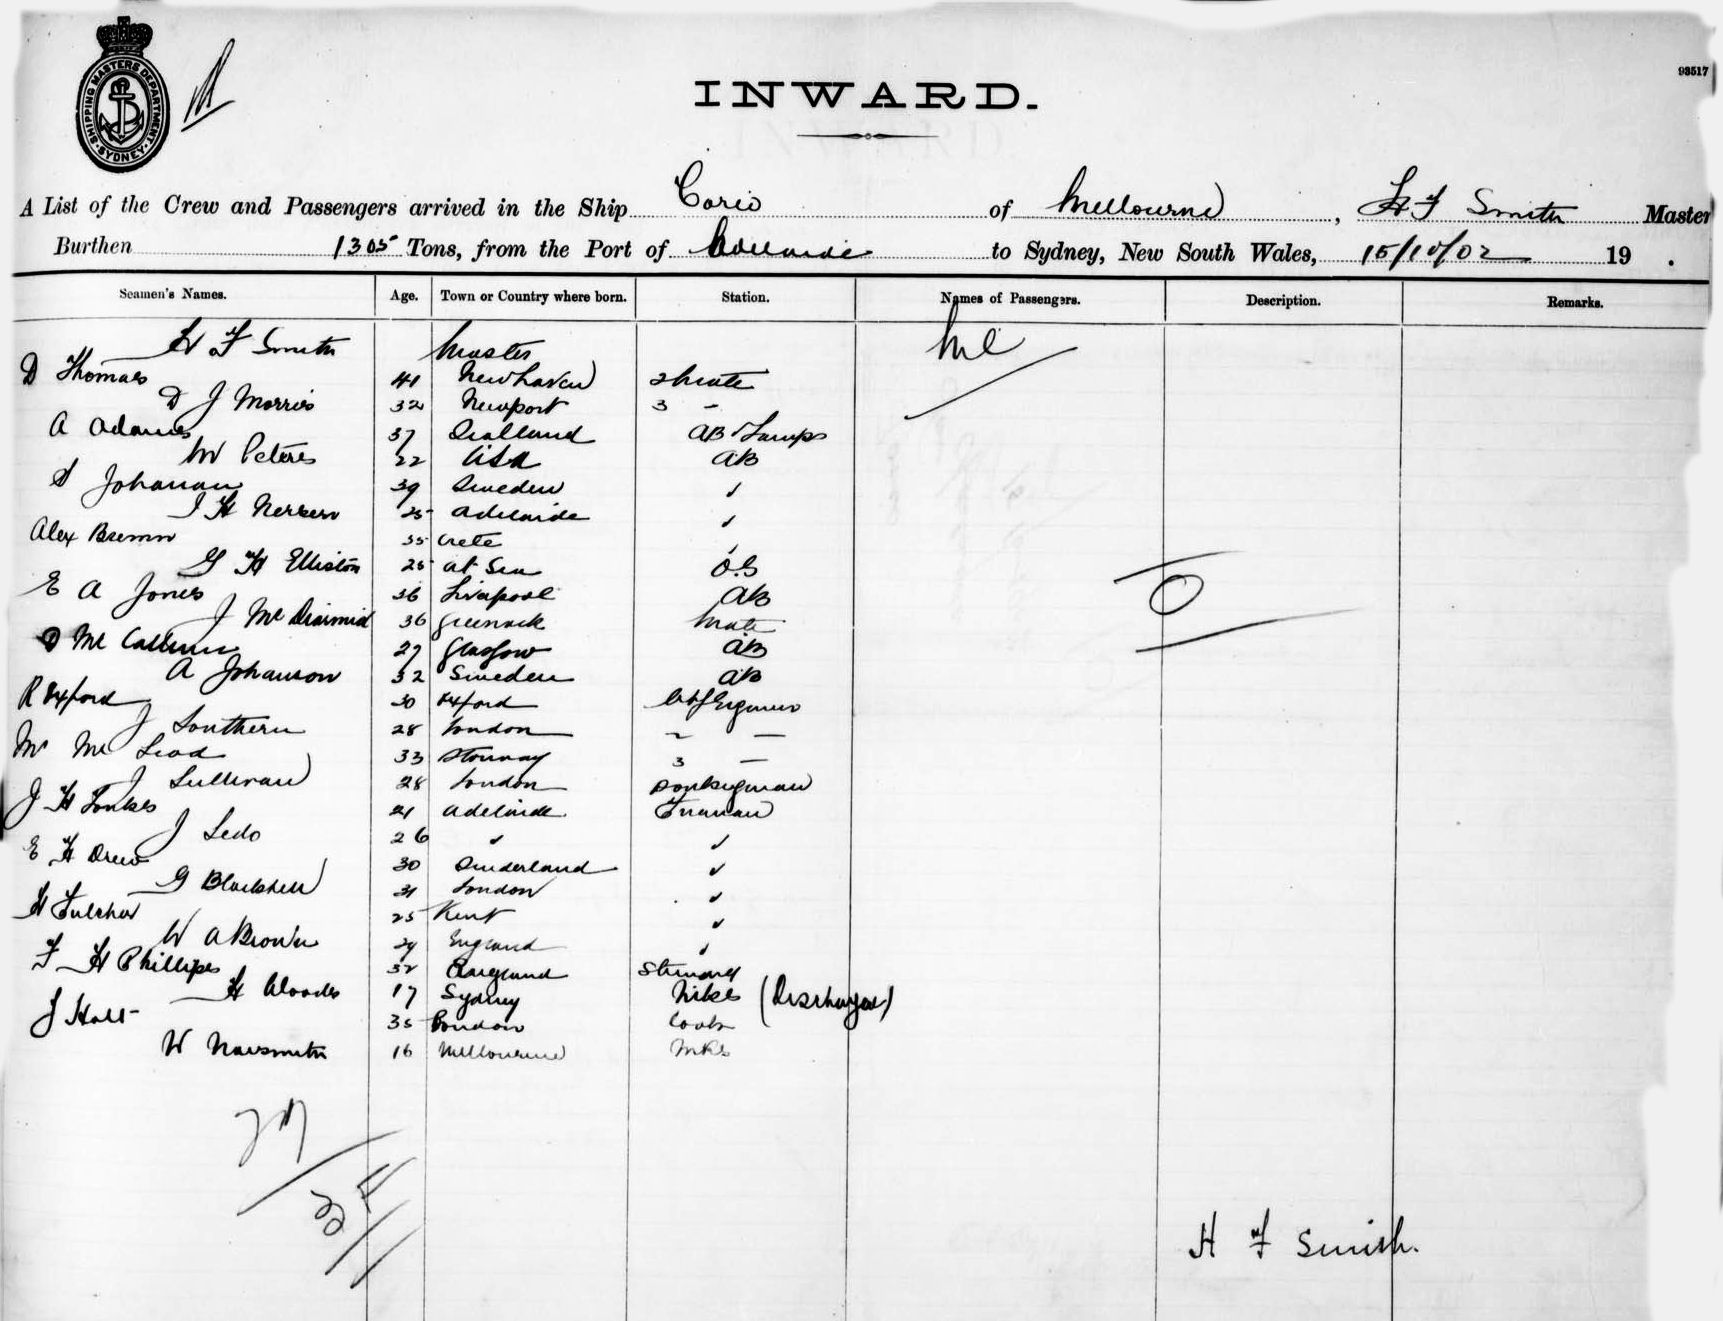 SHIPPING MASTERS DEPARTMENT
SYDNEY
93517
INWARD.
A List of the Crew and Passengers arrived in the Ship Corio of Melbourne, H F Smith Master
Burthen 1305 Tons, from the Port of Adelaide to Sydney, New South Wales, 15/10/02 19 .
Seamen's Names. Age. Town or Country where born. Station. Names of Passengers. Description. Remarks.
H F Smith Master
D Thomas 41 Newhaven 2 Mate
D J Morris 32 Newport 3 -
A Adams 37 AB & Lamps
W Peters 22 USA AB
Johanan 39 Sweden ✓
J H 25 Adelaide ✓
Alex 35 Crete ✓
G H Elliston 25 at Sea O.S
E A Jones 36 Liverpool AB
J Mc Diarmid 36 Greenock Mate
D Mc Callum 27 Glasgow AB
A Johanson 32 Sweden AB
R Oxford 30 Oxford Chf Engineer
J Southern 28 London 2 -
M Mc Leod 33 3 -
J Sullivan 28 London Donkeyman
J H 21 Adelaide Fireman
J Ledo 26 ✓ ✓
E H Drew 30 Sunderland ✓
G 31 London ✓
H Fulcher 25 Kent ✓
W A Brown 29 England ✓
F H Phillips 32 England Steward
H Woods 17 Sydney (Discharged)
J Hall 35 London Cook
W Naismith 16 Melbourne
27
H F Smith.